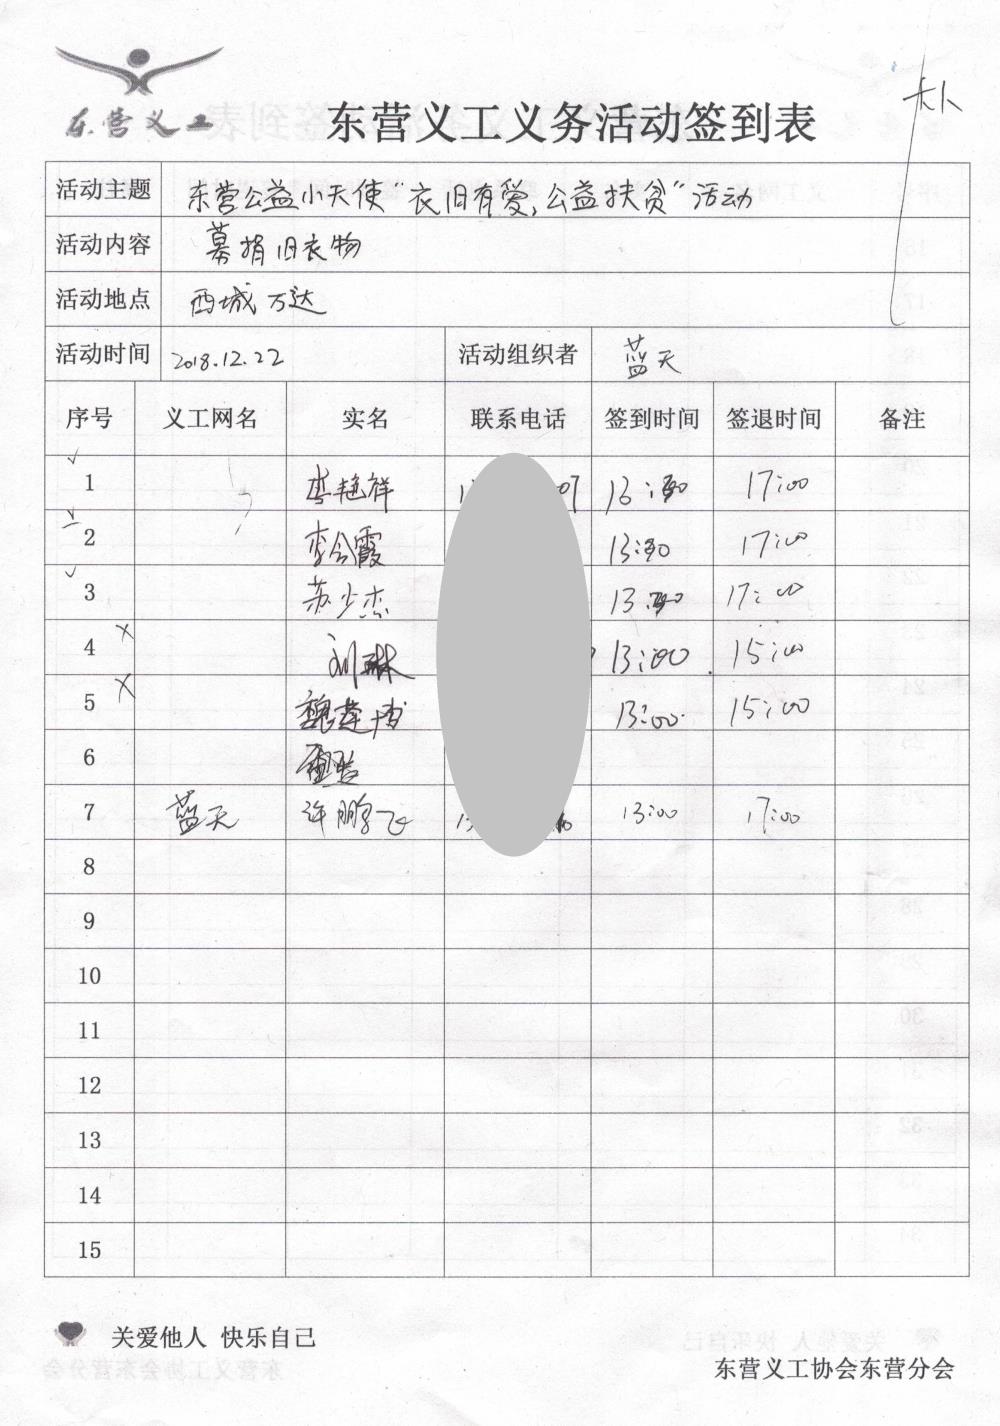 东营义工
东营义工义务活动签到表
活动主题 东营公益小天使“衣旧有爱,公益扶贫”活动
活动内容 募捐旧衣物
活动地点 西城万达
活动时间 2018.12.22 活动组织者 蓝天
序号 义工网名 实名 联系电话 签到时间 签退时间 备注
1 李艳祥 17:00
2 李会霞 17:00
3 苏少杰 17:00
4 刘琳 13:00 15:00
5 魏莲香 13:00 15:00
6
7 蓝天 许鹏飞 13:00 17:00
8
9
10
11
12
13
14
15
关爱他人 快乐自己
东营义工协会东营分会